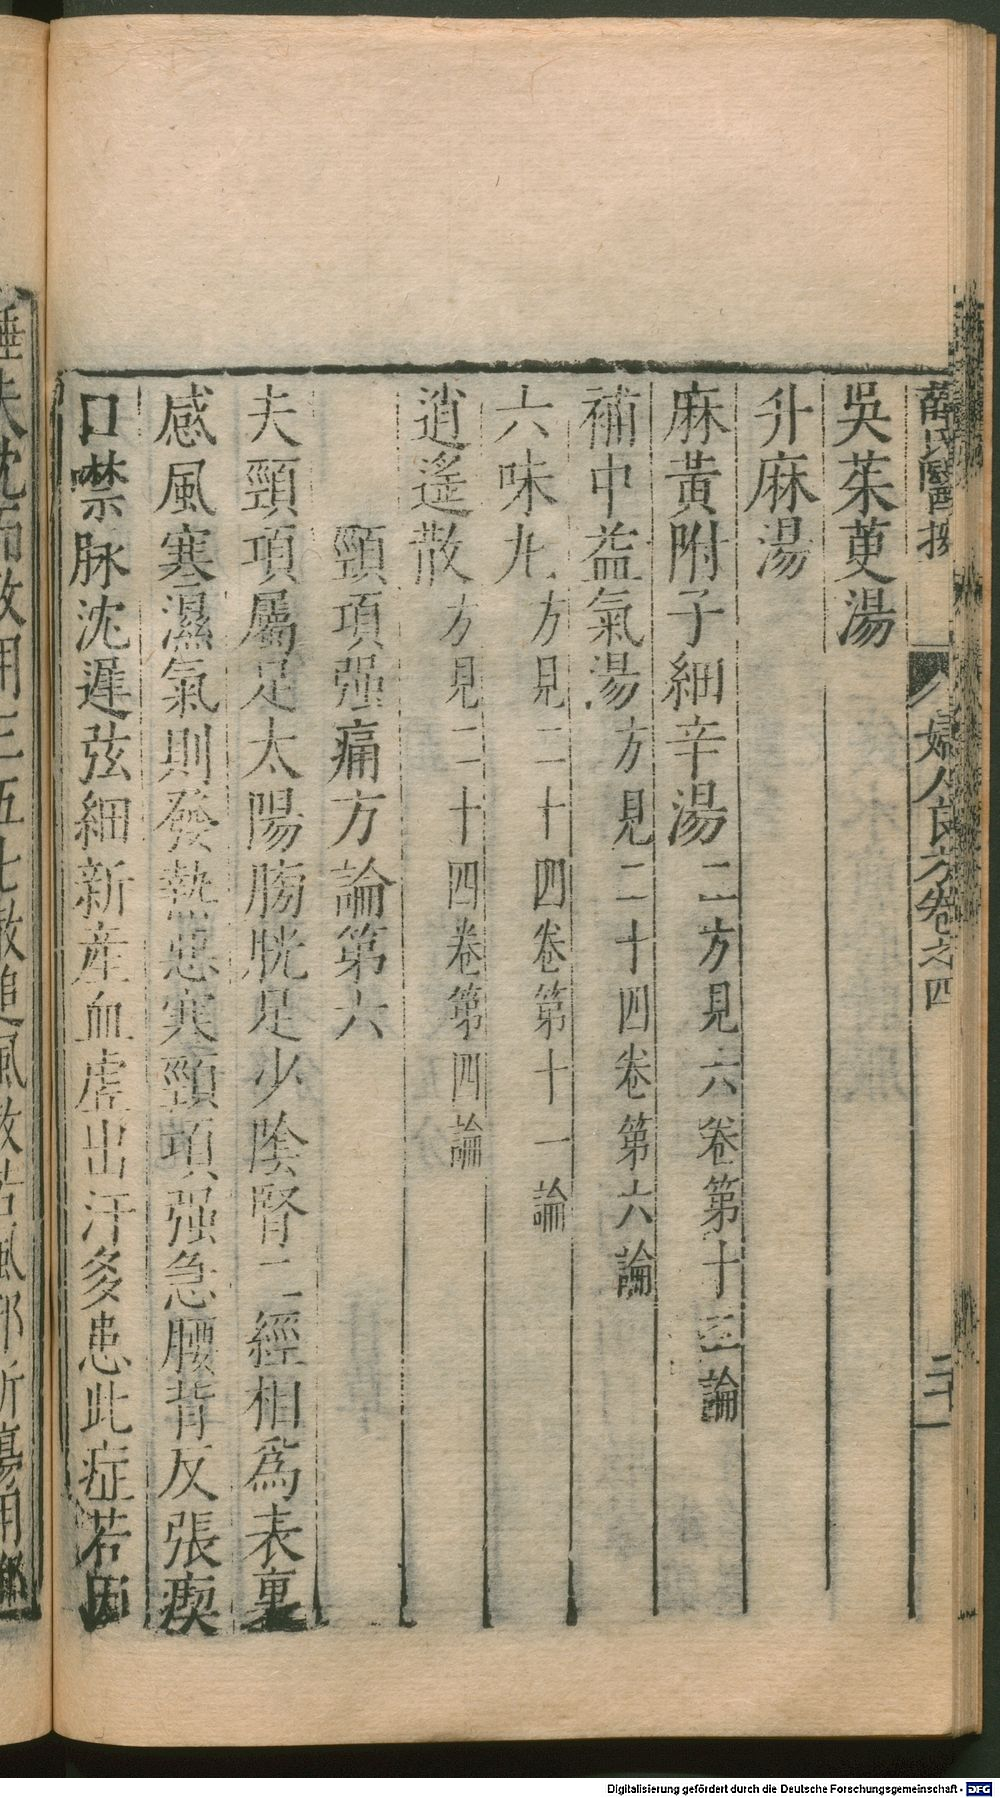 薛氏醫按 婦人良方卷之四 二十一
吳茱萸湯
升麻湯
麻黃附子細辛湯二方見六卷第十三論
補中益氣湯方見二十四卷第六論
六味丸方見二十四卷第十一論
逍遙散方見二十四卷第四論
頸項强痛方論第六
夫頸項屬足太陽膀胱足少陰腎二經相爲表裏
感風寒濕氣則發熱惡寒頸項强急腰背反張瘈
口噤脉沈遲弦細新產血虛出汗多患此症若因
用三五七散追風散若風邪所傷用都
Digitalisierung gefördert durch die Deutsche Forschungsgemeinschaft - DFG